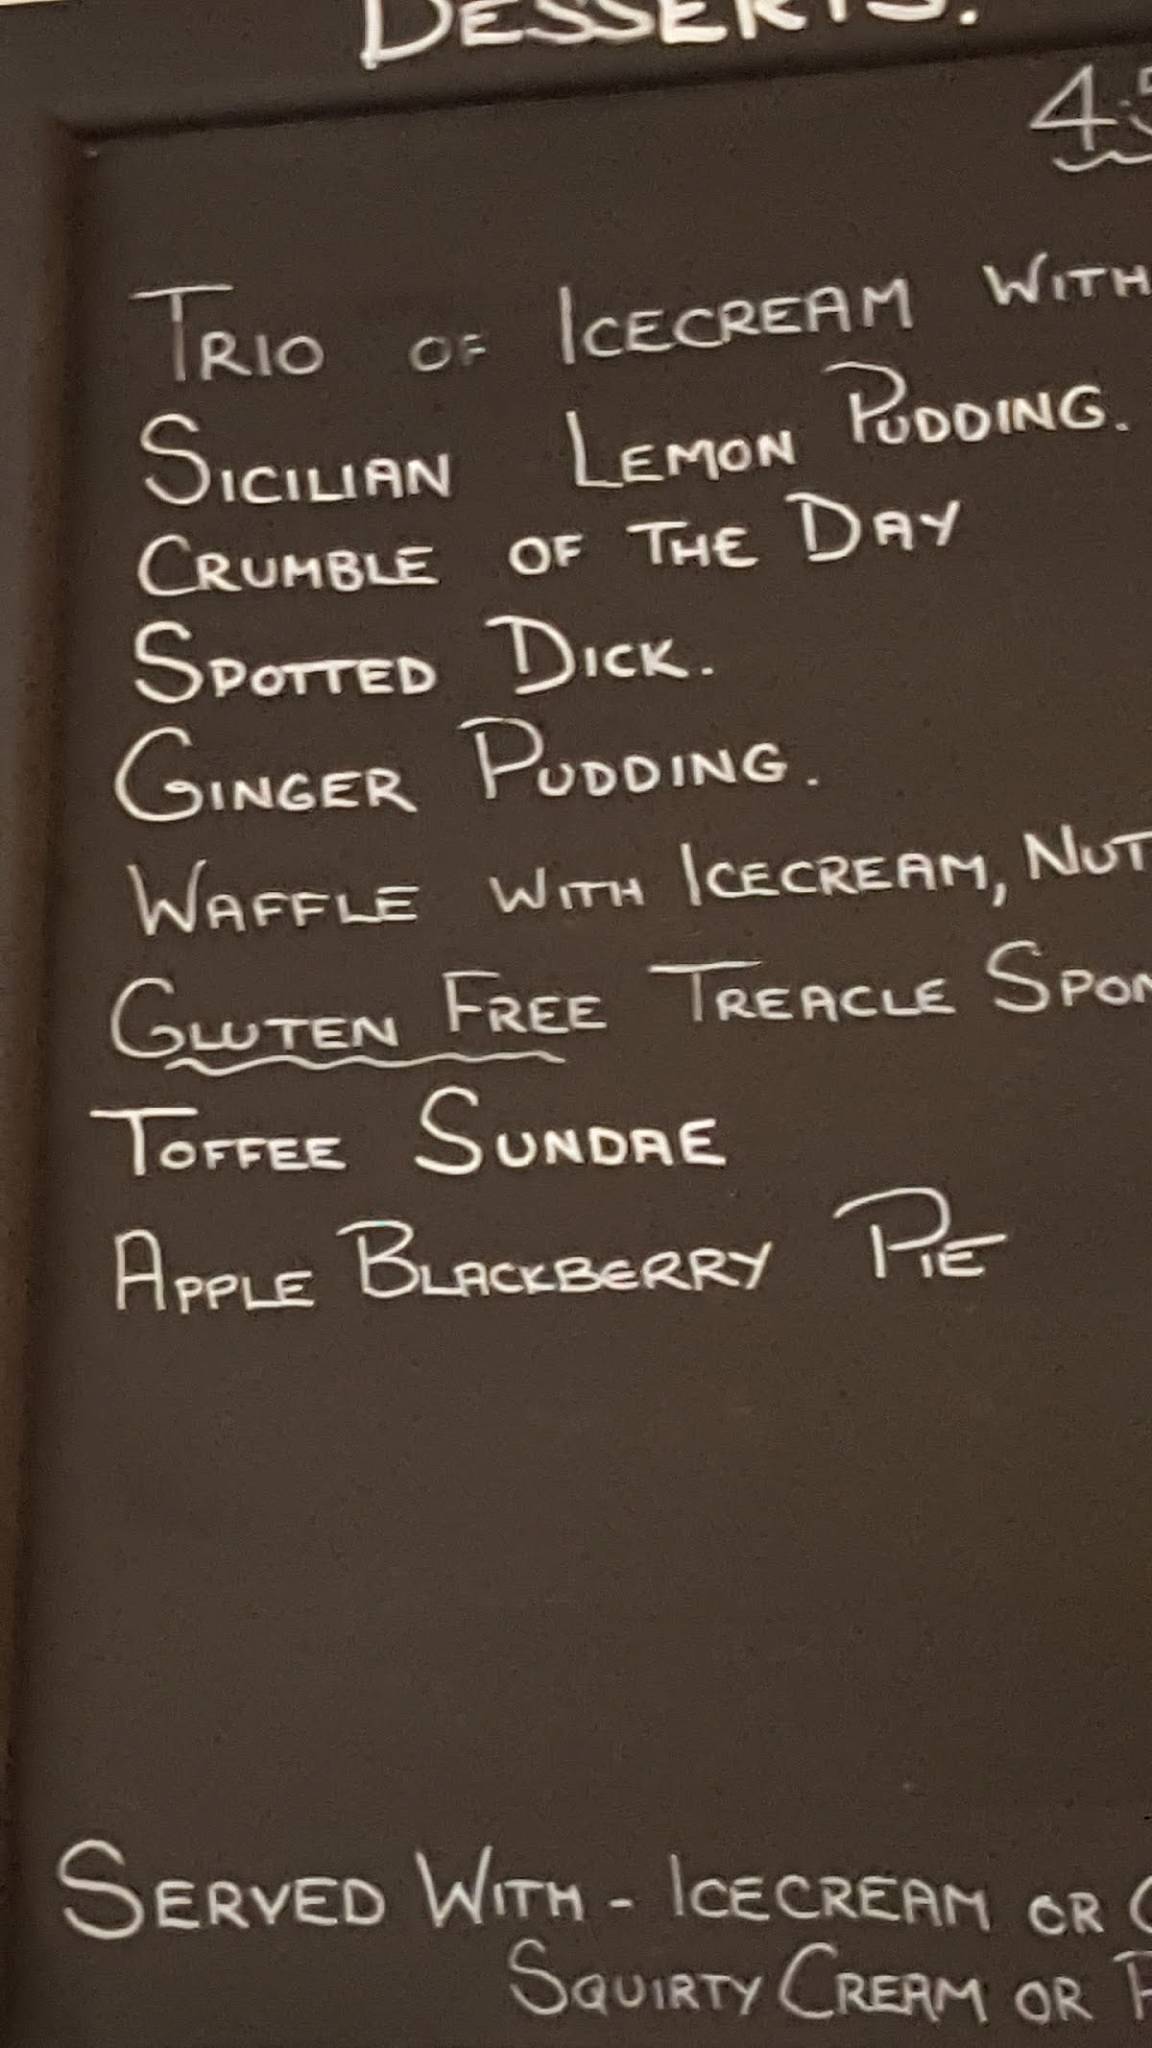 DESSERTS.
TRIO OF ICECREAM WITH
SICILIAN LEMON PUDDING.
CRUMBLE OF THE DAY
SPOTTED DICK.
GINGER PUDDING.
WAFFLE WITH ICECREAM, NUT
GLUTEN FREE TREACLE SPON
TOFFEE SUNDAE
APPLE BLACKBERRY PIE
SERVED WITH - ICECREAM OR
SQUIRTY CREAM OR